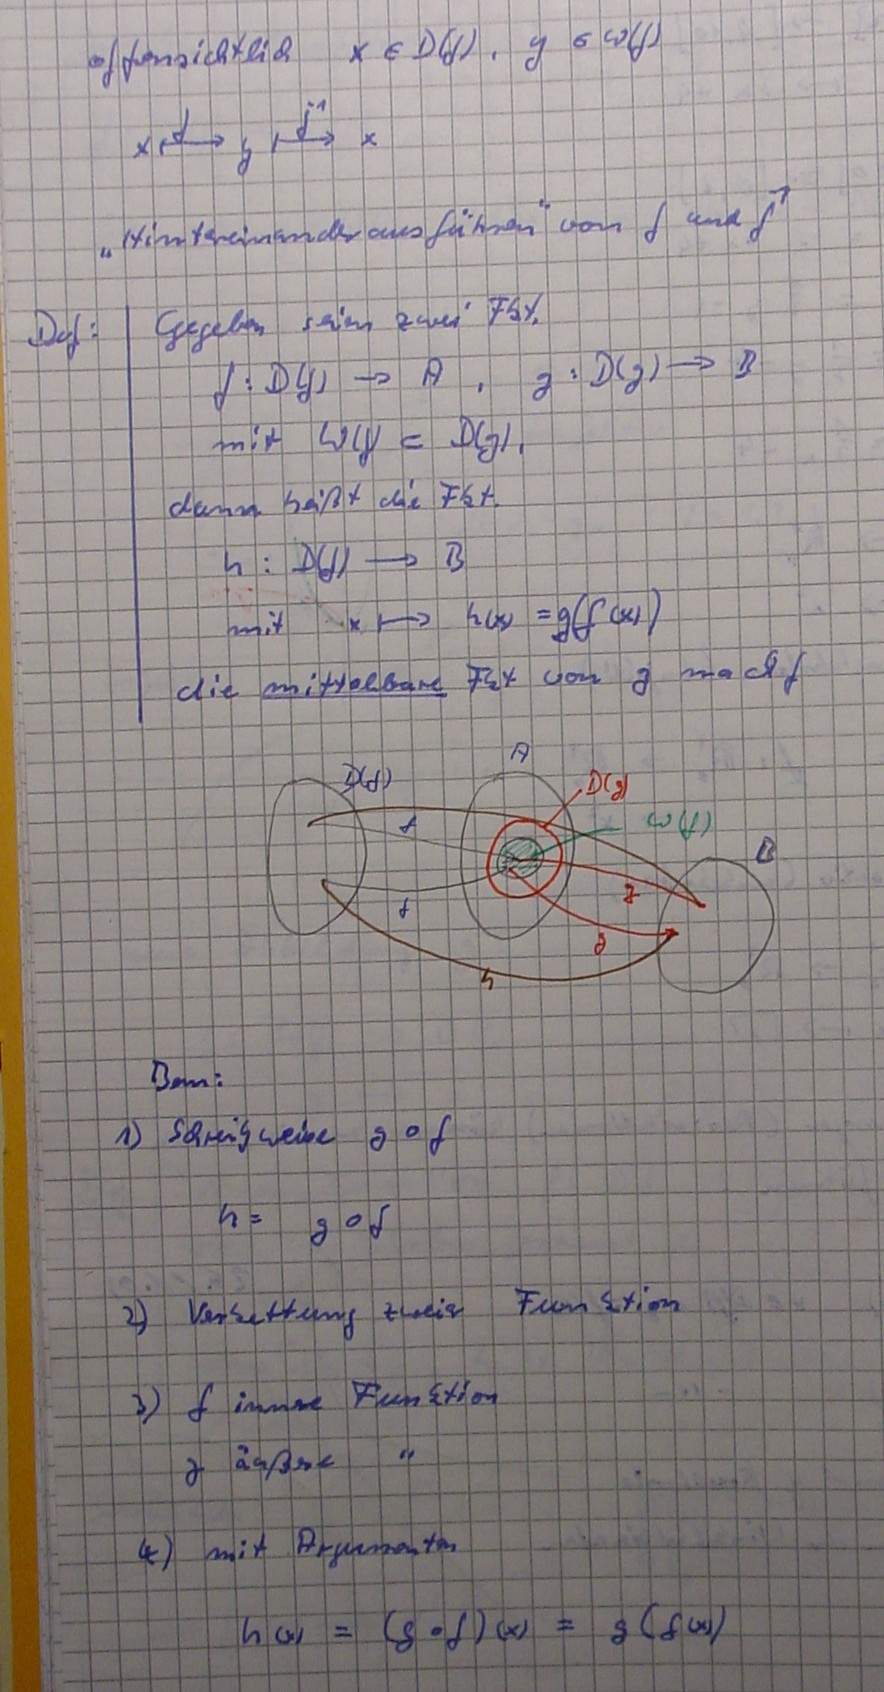 offensichtlich x ∈ D(f), y ∈ W(f)
x ⟼ y ⟼ x
f f⁻¹
„Hintereinanderausführen" von f und f⁻¹
Def: Gegeben seien zwei Fkt.
f : D(f) → A , g : D(g) → B
mit W(f) ⊂ D(g),
dann heißt die Fkt.
h : D(f) → B
mit x ⟼ h(x) = g(f(x))
die mittelbare Fkt von g nach f
D(f) A D(g) W(f) B
f g
f g
h
Bem:
1) Schreibweise g ∘ f
h = g ∘ f
2) Verkettung zweier Funktion
3) f innere Funktion
g äußere "
4) mit Argumenten
h(x) = (g ∘ f)(x) = g(f(x))